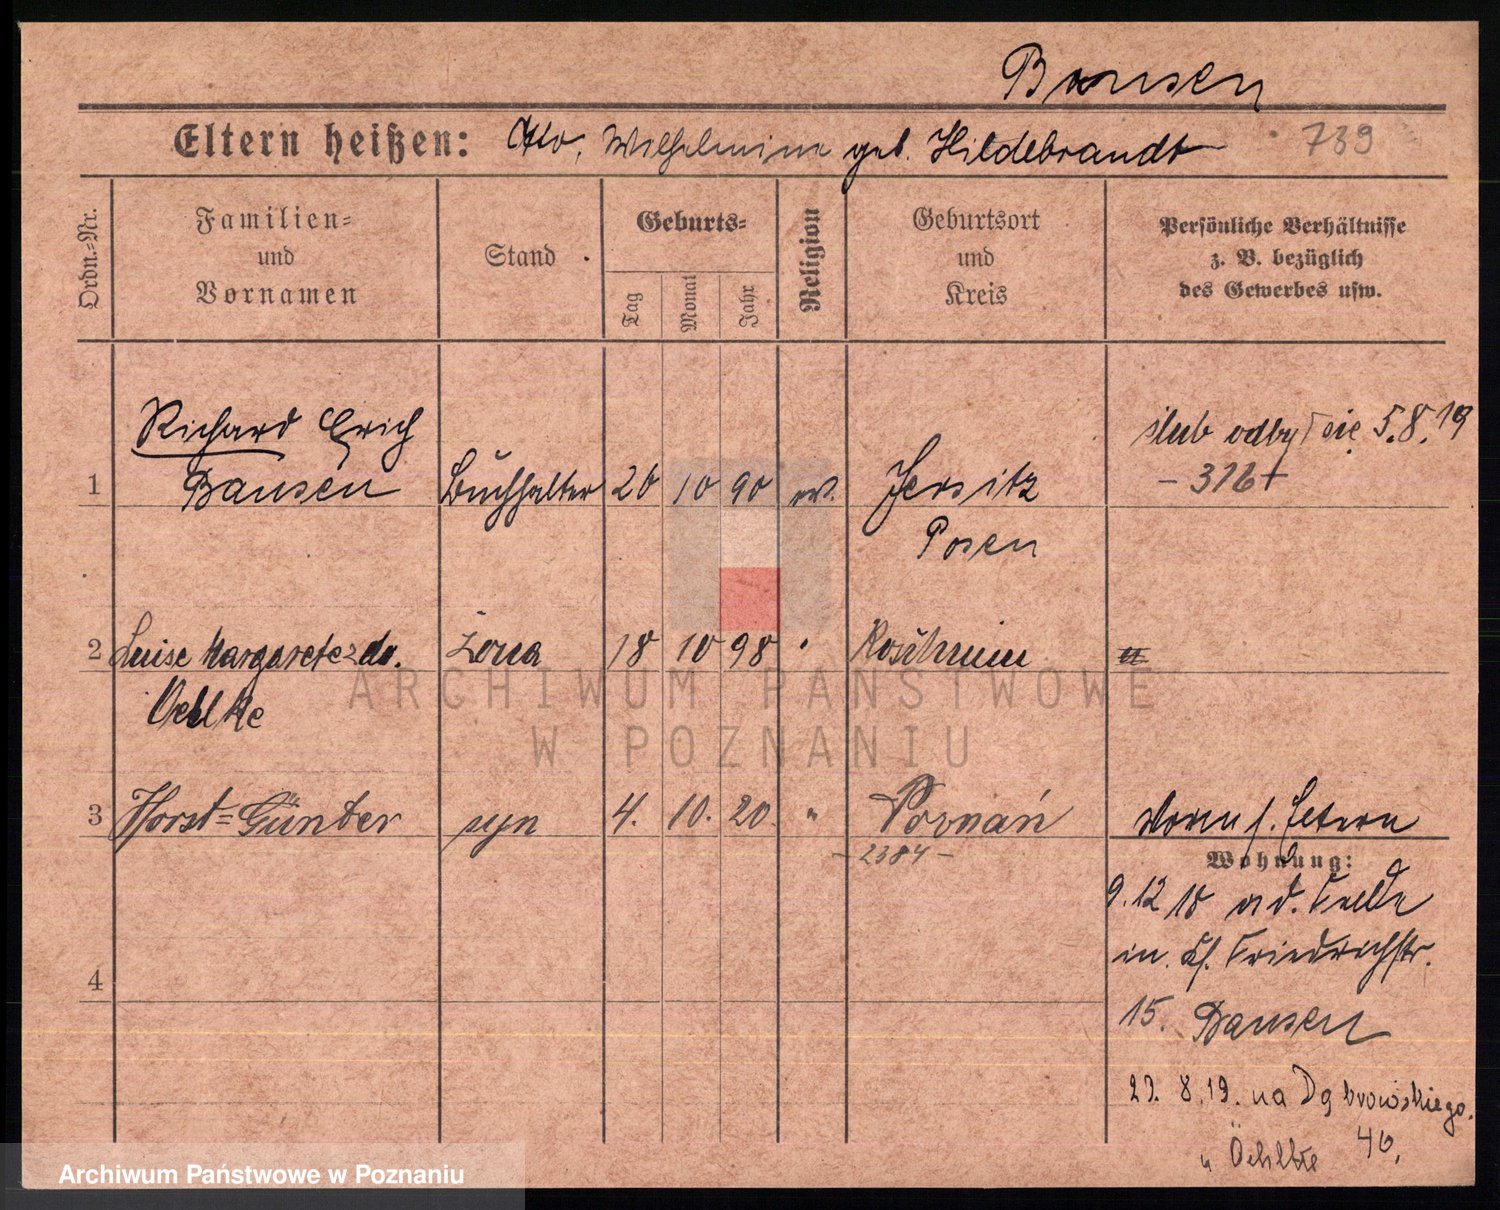 Bansen
Eltern heißen: Otto, Wilhelmine geb. Hildebrandt 739
Ordn.=Nr.
Familien=
und
Vornamen
Stand
Geburts=
Tag
Monat
Jahr
Religion
Geburtsort
und
Kreis
Persönliche Verhältnisse
z. B. bezüglich
des Gewerbes usw.
Richard Erich
1 Bansen Buchhalter 26 10 90 ev. Jersitz
Posen
ślub odbył się 5.8.19
- 316 +
2 Luise Margarete zdo. żona 18 10 98 "
Oehlke
3 Horst=Günter syn 4. 10. 20. " Poznań
- 2384 -
Wohnung:
9.12 18
Friedrichstr.
4
15. Bansen
8.19. na Dąbrowskiego
46.
u Oehlke
ARCHIWUM PAŃSTWOWE
W POZNANIU
Archiwum Państwowe w Poznaniu